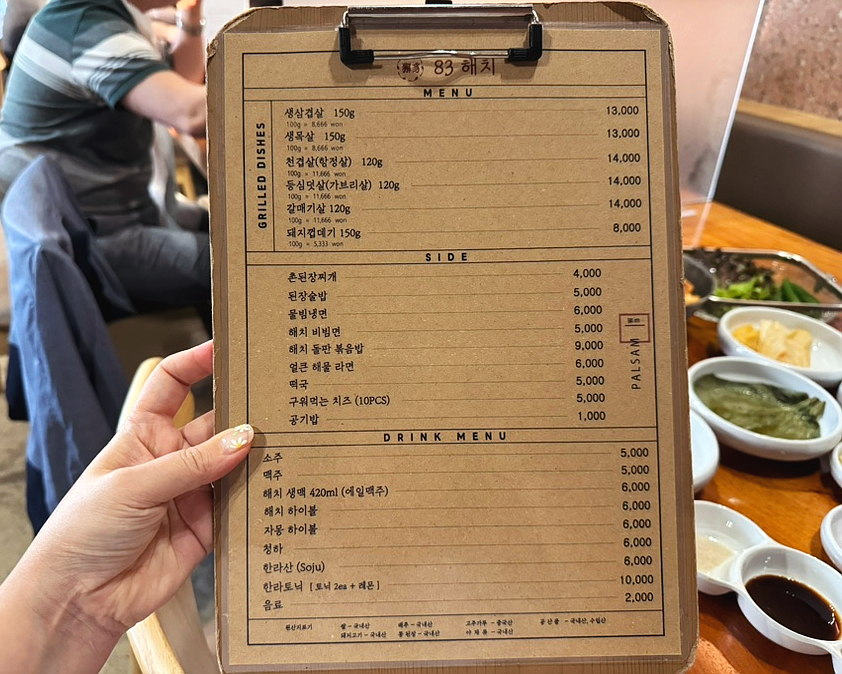 83 해치
MENU
GRILLED DISHES
생삼겹살 150g 13,000
100g = 8,666 won
생목살 150g 13,000
100g = 8,666 won
천겹살(항정살) 120g 14,000
100g = 11,666 won
등심덧살(가브리살) 120g 14,000
100g = 11,666 won
갈매기살 120g 14,000
100g = 11,666 won
돼지껍데기 150g 8,000
100g = 5,333 won
SIDE
촌된장찌개 4,000
된장술밥 5,000
물빔냉면 6,000
해치 비빔면 5,000
해치 돌판 볶음밥 9,000
얼큰 해물 라면 6,000
떡국 5,000
구워먹는 치즈 (10PCS) 5,000
공기밥 1,000
PALSAM
DRINK MENU
소주 5,000
맥주 5,000
해치 생맥 420ml (에일맥주) 6,000
해치 하이볼 6,000
자몽 하이볼 6,000
청하 6,000
한라산 (Soju) 6,000
한라토닉 [ 토닉 2ea + 레몬 ] 10,000
음료 2,000
원산지표기 쌀 - 국내산 배추 - 국내산 고추가루 - 중국산 공산품 - 국내산, 수입산
돼지고기 - 국내산 콩 된장 - 국내산 야채류 - 국내산